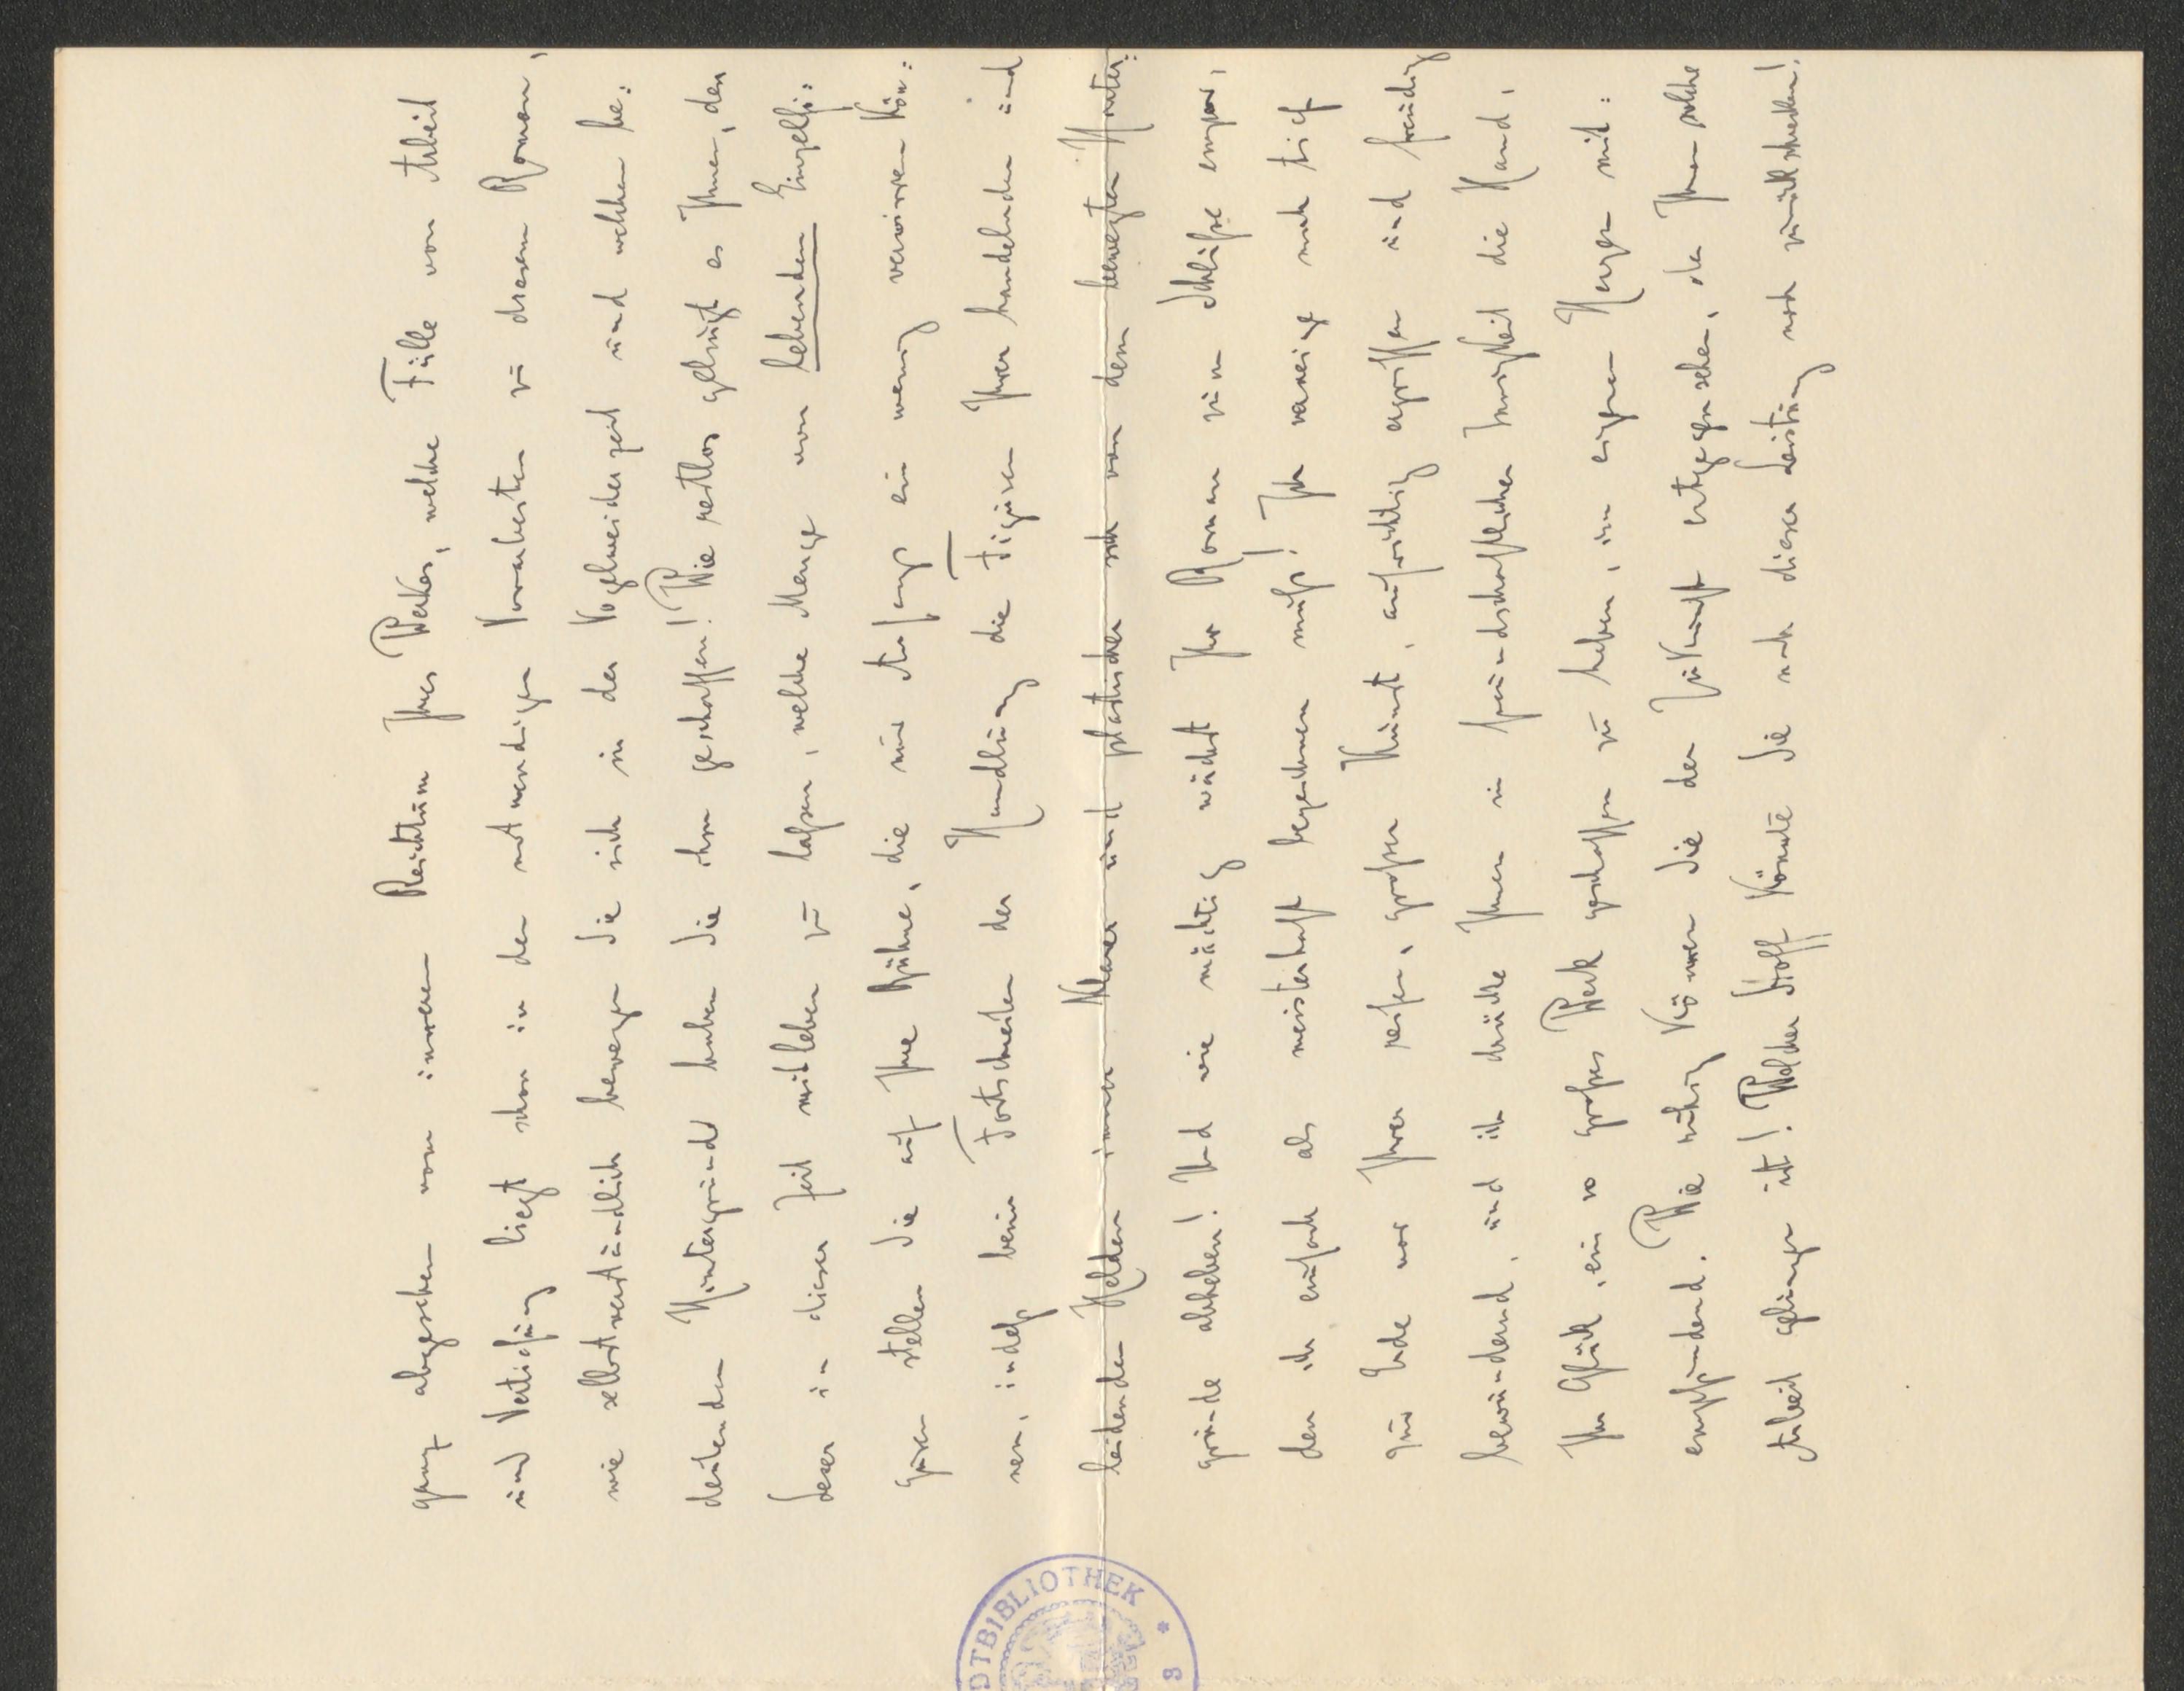 ganz abgesehen vom inneren Reichtum Ihres Werkes, welche Fülle von Arbeit
und Vertiefung liegt schon in den notwendigen Vorarbeiten zu diesem Roman,
wie selbstverständlich bewegen Sie sich in der Vogelweiderzeit und welchen be:
deutenden Hintergrund haben Sie ihm geschaffen! Wie restlos gelingt es Ihnen, den
Leser in dieser Zeit mitleben zu laßen, welche Menge von lebenden Einzelfi:
guren stellen Sie auf Ihre Bühne, die nur Anfangs ein wenig verwirren kön:
nen, indeß beim Fortschreiten der Handlung die Figuren Ihrer handelnden und
leidenden Helden immer klarer und plastischer sich von dem bewegten Hinter:
grunde abheben! Und wie mächtig wächst Ihr Roman zum Schluße empor,
den ich einfach als meisterhaft bezeichnen muß! Ich verneige mich tief
zur Erde vor Ihrer reifen, großen Kunst, aufrichtig ergriffen und freudig
bewundernd, und ich drücke Ihnen in freundschaftlicher Innigkeit die Hand,
Ihr Glück, ein so großes Werk geschaffen zu haben, im eigenen Herzen mit:
empfindend. Wie ruhig können Sie der Zukunft entgegensehen, da Ihnen solche
Arbeit gelungen ist! Welcher Stoff könnte Sie nach dieser Leistung noch zurückschrecken!
DTBIBLIOTHEK *